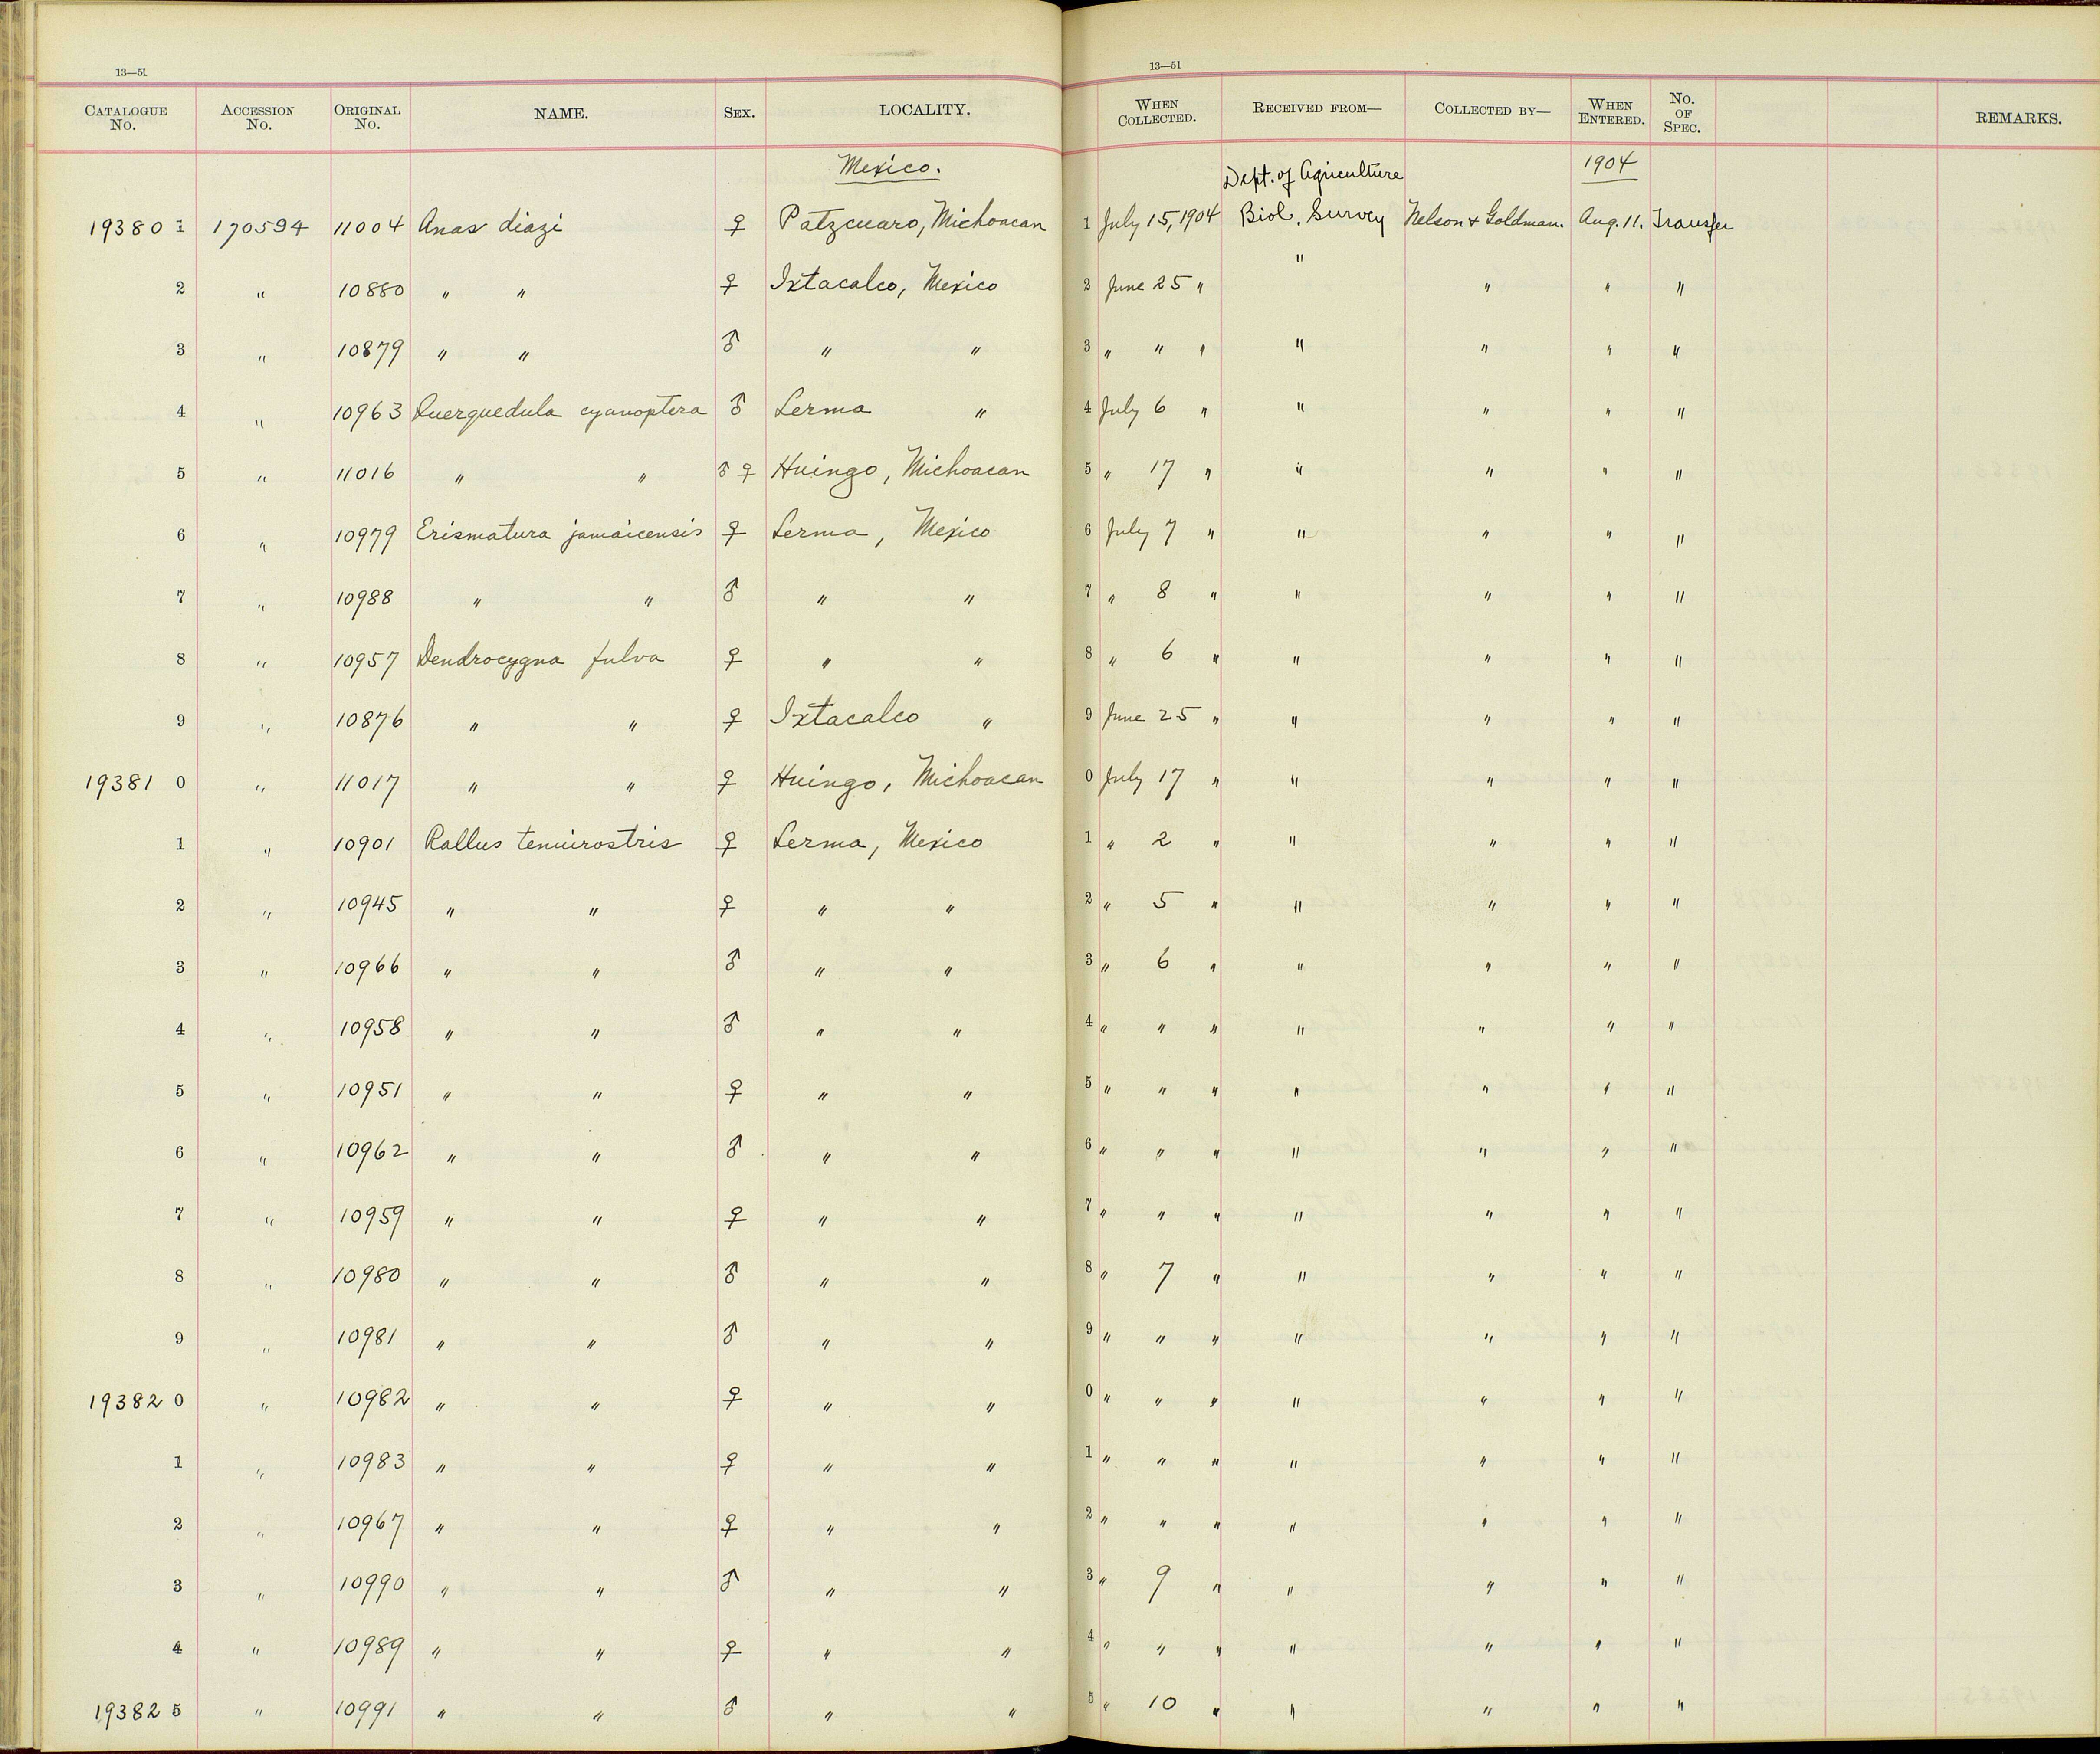 13—51 13—51
CATALOGUE No. ACCESSION No. ORIGINAL No. NAME. SEX. LOCALITY. WHEN COLLECTED. RECEIVED FROM— COLLECTED BY— WHEN ENTERED. No. OF SPEC. REMARKS.
Mexico. Dept. of Agriculture 1904
19380 1 170594 11004 Anas diazi ♀ Patzcuaro, Michoacan 1 July 15, 1904 Biol. Survey Nelson & Goldman. Aug. 11. Transfer
2 " 10880 " " ♀ Ixtacalco, Mexico 2 June 25 " " " " "
3 " 10879 " " ♂ " " 3 " " " " " " "
4 " 10963 Querquedula cyanoptera ♂ Lerma " 4 July 6 " " " " "
5 " 11016 " " ♂ ♀ Huingo, Michoacan 5 " 17 " " " " "
6 " 10979 Erismatura jamaicensis ♀ Lerma, Mexico 6 July 7 " " " " "
7 " 10988 " " ♂ " " 7 " 8 " " " " "
8 " 10957 Dendrocygna fulva ♀ " " 8 " 6 " " " " "
9 " 10876 " " ♀ Ixtacalco " 9 June 25 " " " " "
19381 0 " 11017 " " ♀ Huingo, Michoacan 0 July 17 " " " " "
1 " 10901 Rallus tenuirostris ♀ Lerma, Mexico 1 " 2 " " " " "
2 " 10945 " " ♀ " " 2 " 5 " " " " "
3 " 10966 " " ♂ " " 3 " 6 " " " " "
4 " 10958 " " ♂ " " 4 " " " " " " "
5 " 10951 " " ♀ " " 5 " " " " " " "
6 " 10962 " " ♂ " " 6 " " " " " " "
7 " 10959 " " ♀ " " 7 " " " " " " "
8 " 10980 " " ♂ " " 8 " 7 " " " " "
9 " 10981 " " ♂ " " 9 " " " " " " "
19382 0 " 10982 " " ♀ " " 0 " " " " " " "
1 " 10983 " " ♀ " " 1 " " " " " " "
2 " 10967 " " ♀ " " 2 " " " " " " "
3 " 10990 " " ♂ " " 3 " 9 " " " " "
4 " 10989 " " ♀ " " 4 " " " " " " "
19382 5 " 10991 " " ♂ " " 5 " 10 " " " " "